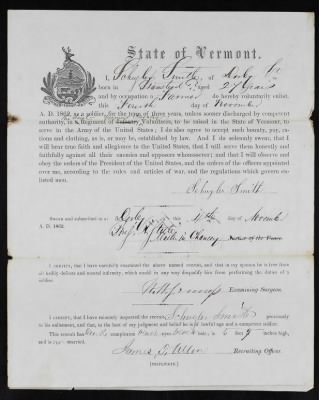 State of Vermont.
I, Schuyler Smith, of Derby Vt
born in Stanstead aged 27 years
and by occupation a Farmer do hereby voluntarily enlist,
this Fourth day of November
A. D. 1862, as a soldier, for the term of three years, unless sooner discharged by competent
authority, in a Regiment of Volunteers, to be raised in the State of Vermont, to
serve in the Army of the United States; I do also agree to accept such bounty, pay, ra-
tions and clothing, as is, or may be, established by law. And I do solemnly swear, that I
will bear true faith and allegiance to the United States, that I will serve them honestly and
faithfully against all their enemies and opposers whomsoever; and that I will observe and
obey the orders of the President of the United States, and the orders of the officers appointed over
me, according to the rules and articles of war, and the regulations which govern en-
listed men.
Schuyler Smith.
Sworn and subscribed to at Derby this 4th day of November
A. D. 1862.
Master in Chancery Justice of the Peace
I CERTIFY, that I have carefully examined the above named recruit, and that in my opinion he is free from
all bodily defects and mental infirmity, which could in any way disqualify him from performing the duties of a
soldier.
Examining Surgeon.
I CERTIFY, that I have minutely inspected the recruit, Schuyler Smith previously
to his enlistment, and that, to the best of my judgment and belief he is of lawful age and a competent soldier.
This recruit has eyes, hair, complexion, is 5 feet 9 inches high,
and is married.
James T. Allen Recruiting Officer.
[TRIPLICATE.]